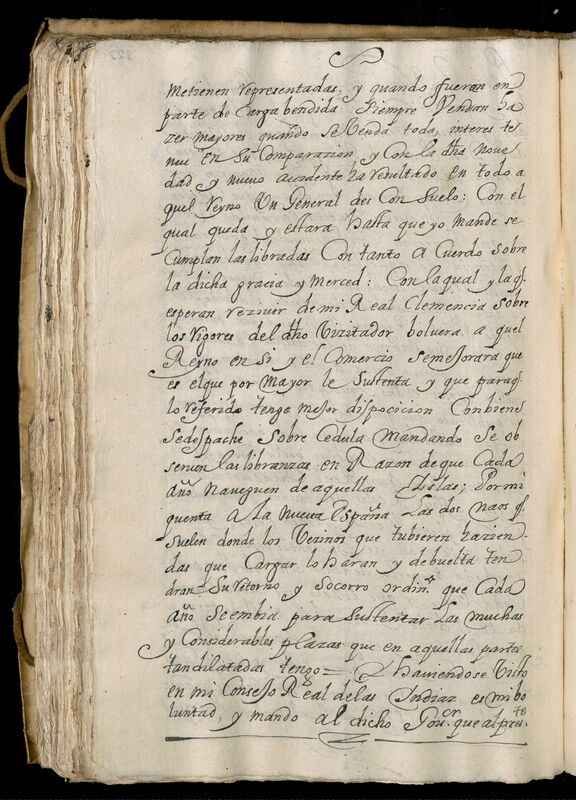 me tienen representadas, y quando fueran en
parte de Carga bendida Siempre Vendian ha
zer mayores quando se Venda toda, interes te
nue en Su Comparazion, y Con la dha nove
dad y nuevo accidente ha resultado en todo a
quel Reyno Un General des Con Suelo: Con el
qual queda y estara hasta que yo mande se
Cumplan las libradas Con tanto A Cuerdo Sobre
la dicha gracia y Merced: Con la qual y la q̃
esperan rezivir de mi Real Clemencia Sobre
los Rigores del dho Vizitador bolvera a quel
Reyno en Si y el Comercio Se mejorara que
es el que por Mayor le Sustenta y que para q̃
lo referido tenga mejor dispocicion Conbiene
Se despache Sobre Cedula Mandando Se ob
serven las libranzas en Razon de que Cada
año naveguen de aquellas Islas; Por mi
quenta A la Nueva España Las dos naos q̃
Suelen donde los Vezinos que tubieren hazien
das que Cargar lo haran y de buelta ten
dran Su retorno y Socorro ordin.º que Cada
año Se embia para Sustentar Las muchas
y Considerables plazas que en aquellas partes
tan dilatadas tengo = Y haviendose Visto
en mi Consejo Real de las Indiaz es mi bo
luntad, y mando al dicho Gov.or que al pres.te